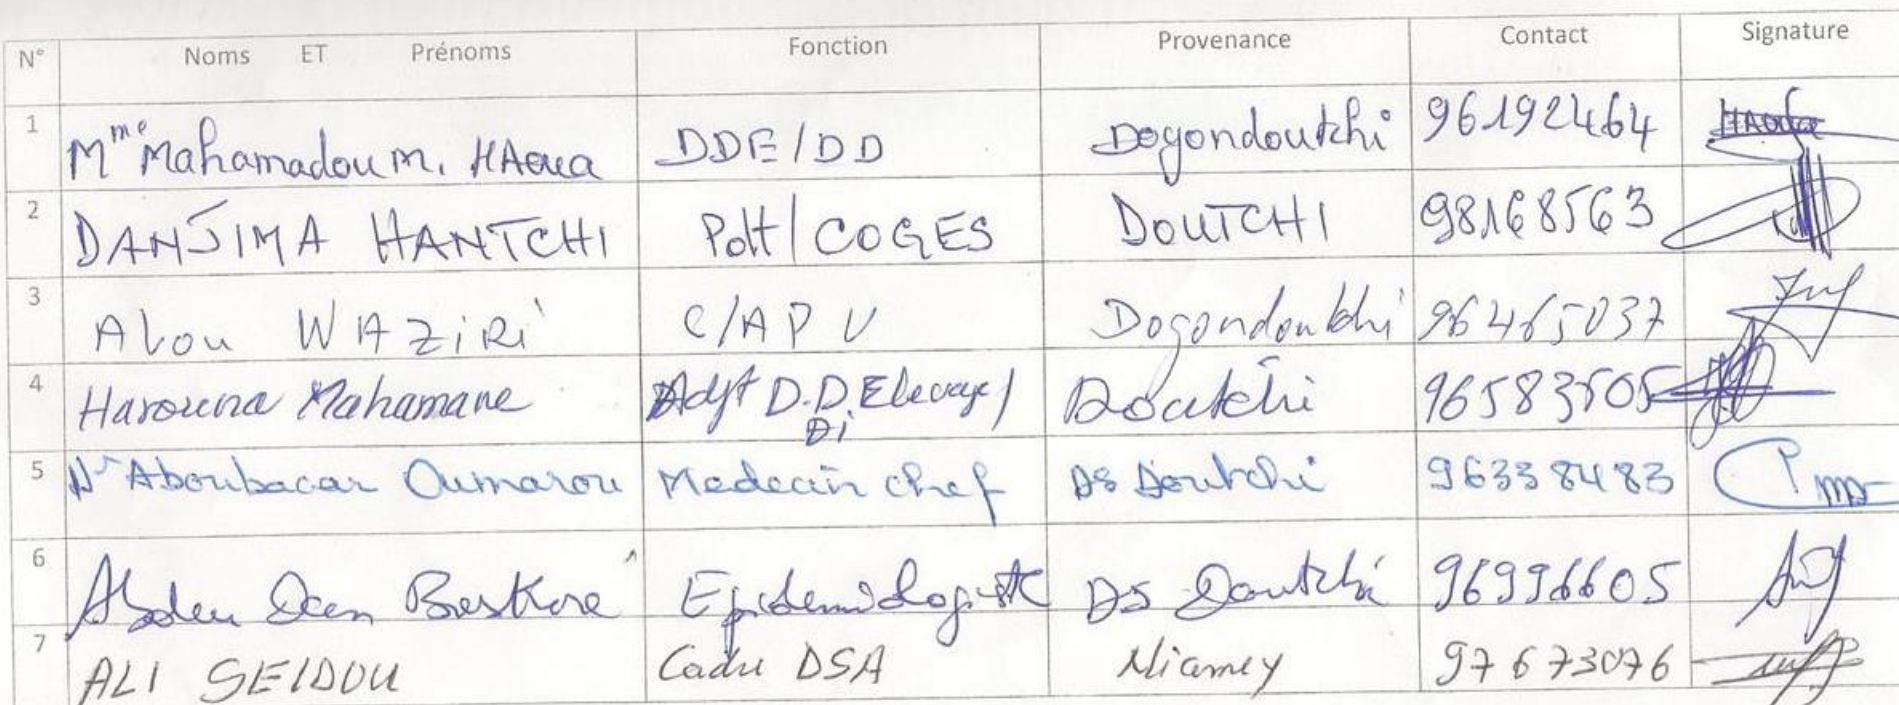 N° Noms ET Prénoms Fonction Provenance Contact Signature
1 Mme Mahamadou M. HAoua DDE/DD Dogondoutchi 96192464 HAoua
2 DANJIMA HANTCHI Pdt/COGES DOUTCHI 98168563
3 Alou WAZiRi C/APU Dogondoutchi 96465037
4 Harouna Mahamane Adjt D.D.Elevage/ Doutchi 96583505
Di
5 Dr Aboubacar Oumarou Medecin chef DS Doutchi 96338483
6 Abdou Dan Baskore Epidemiologiste DS Doutchi 96996605
7 ALI SEIDOU Cadre DSA Niamey 97673076